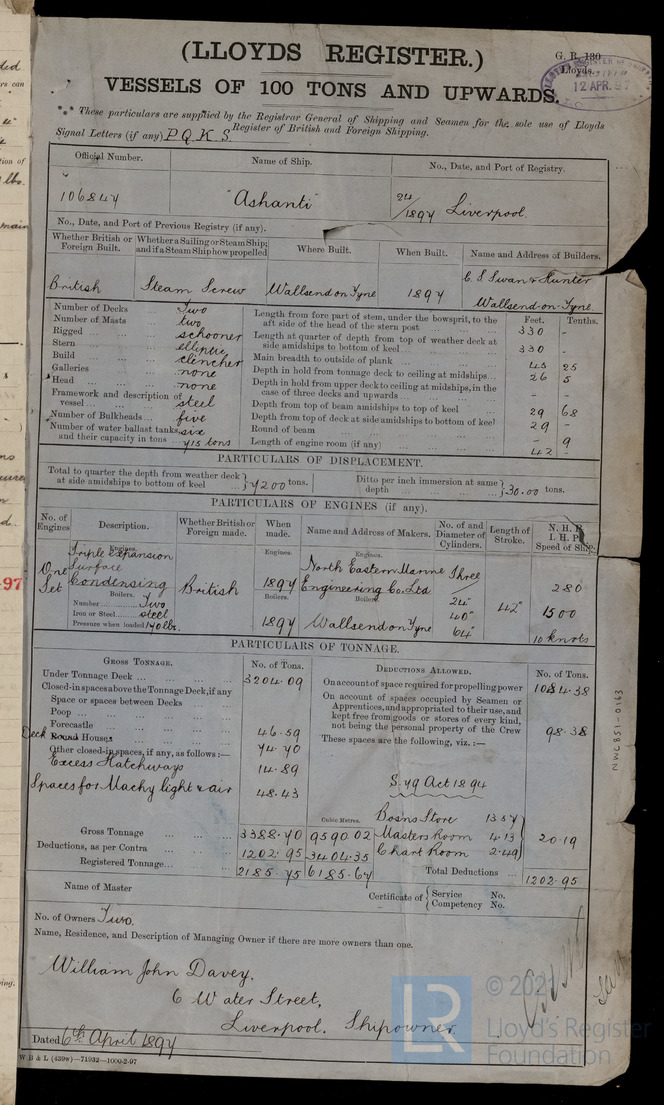 (LLOYDS REGISTER.)
G. R. 130
Lloyds.
VESSELS OF 100 TONS AND UPWARDS.
12 APR. 97
*** These particulars are supplied by the Registrar General of Shipping and Seamen for the sole use of Lloyds
Register of British and Foreign Shipping.
Signal Letters (if any) P Q K S
Official Number. Name of Ship. No., Date, and Port of Registry.
106847 "Ashanti" 24/1897 Liverpool.
No., Date, and Port of Previous Registry (if any).
Whether British or Foreign Built. Whether a Sailing or Steam Ship; and if a Steam Ship how propelled Where Built. When Built. Name and Address of Builders.
British Steam Screw Wallsend on Tyne 1897 C. S. Swan & Hunter
Wallsend-on-Tyne.
Feet. Tenths.
Number of Decks Two
Number of Masts two
Rigged schooner
Stern elliptic
Build clencher
Galleries none
Head none
Framework and description of vessel steel
Number of Bulkheads five
Number of water ballast tanks, six
and their capacity in tons 715 tons
Length from fore part of stem, under the bowsprit, to the aft side of the head of the stern post 330 -
Length at quarter of depth from top of weather deck at side amidships to bottom of keel 330 -
Main breadth to outside of plank 45 25
Depth in hold from tonnage deck to ceiling at midships 26 5
Depth in hold from upper deck to ceiling at midships, in the case of three decks and upwards - -
Depth from top of beam amidships to top of keel 29 68
Depth from top of deck at side amidships to bottom of keel 29 -
Round of beam - 9
Length of engine room (if any) 42 -
PARTICULARS OF DISPLACEMENT.
Total to quarter the depth from weather deck at side amidships to bottom of keel } 7200 tons. Ditto per inch immersion at same depth } 30.00 tons.
PARTICULARS OF ENGINES (if any).
No. of Engines Description. Whether British or Foreign made. When made. Name and Address of Makers. No. of and Diameter of Cylinders. Length of Stroke. N. H. P. I. H. P. Speed of Ship.
Engines. Engines. Engines.
One Set Triple expansion Surface Condensing British 1897 North Eastern Marine Engineering Co. Ltd Three 280
Boilers. Boilers. Boilers.
Number Two 24" 42" 1500
Iron or Steel steel 1897 Wallsend on Tyne 40"
Pressure when loaded 170 lbs. 64" 10 knots
PARTICULARS OF TONNAGE.
GROSS TONNAGE. No. of Tons. DEDUCTIONS ALLOWED. No. of Tons.
Under Tonnage Deck 3204.09
Closed-in spaces above the Tonnage Deck, if any
Space or spaces between Decks
Poop
Forecastle 46.59
Deck Round Houses 74.70
Other closed-in spaces, if any, as follows:—
Excess Hatchways 14.89
Spaces for Machy light & air 48.43
On account of space required for propelling power 1084.38
On account of spaces occupied by Seamen or Apprentices, and appropriated to their use, and kept free from goods or stores of every kind, not being the personal property of the Crew 98.38
These spaces are the following, viz.:—
S. 79 Act 1894
Cubic Metres. Bosns Store 13.57
Gross Tonnage 3388.70 9590.02 Masters Room 4.13 20.19
Deductions, as per Contra 1202.95 3404.35 Chart Room 2.49
Registered Tonnage 2185.75 6185.67 Total Deductions 1202.95
Name of Master
Certificate of { Service No.
Competency No.
No. of Owners Two.
Name, Residence, and Description of Managing Owner if there are more owners than one.
William John Davey,
6 Water Street,
Liverpool. Shipowner.
Dated 6th April 1897
W B & L (439w)—71932—1000-2-97
NWC851-0163
LR
© 2021
Lloyd's Register
Foundation